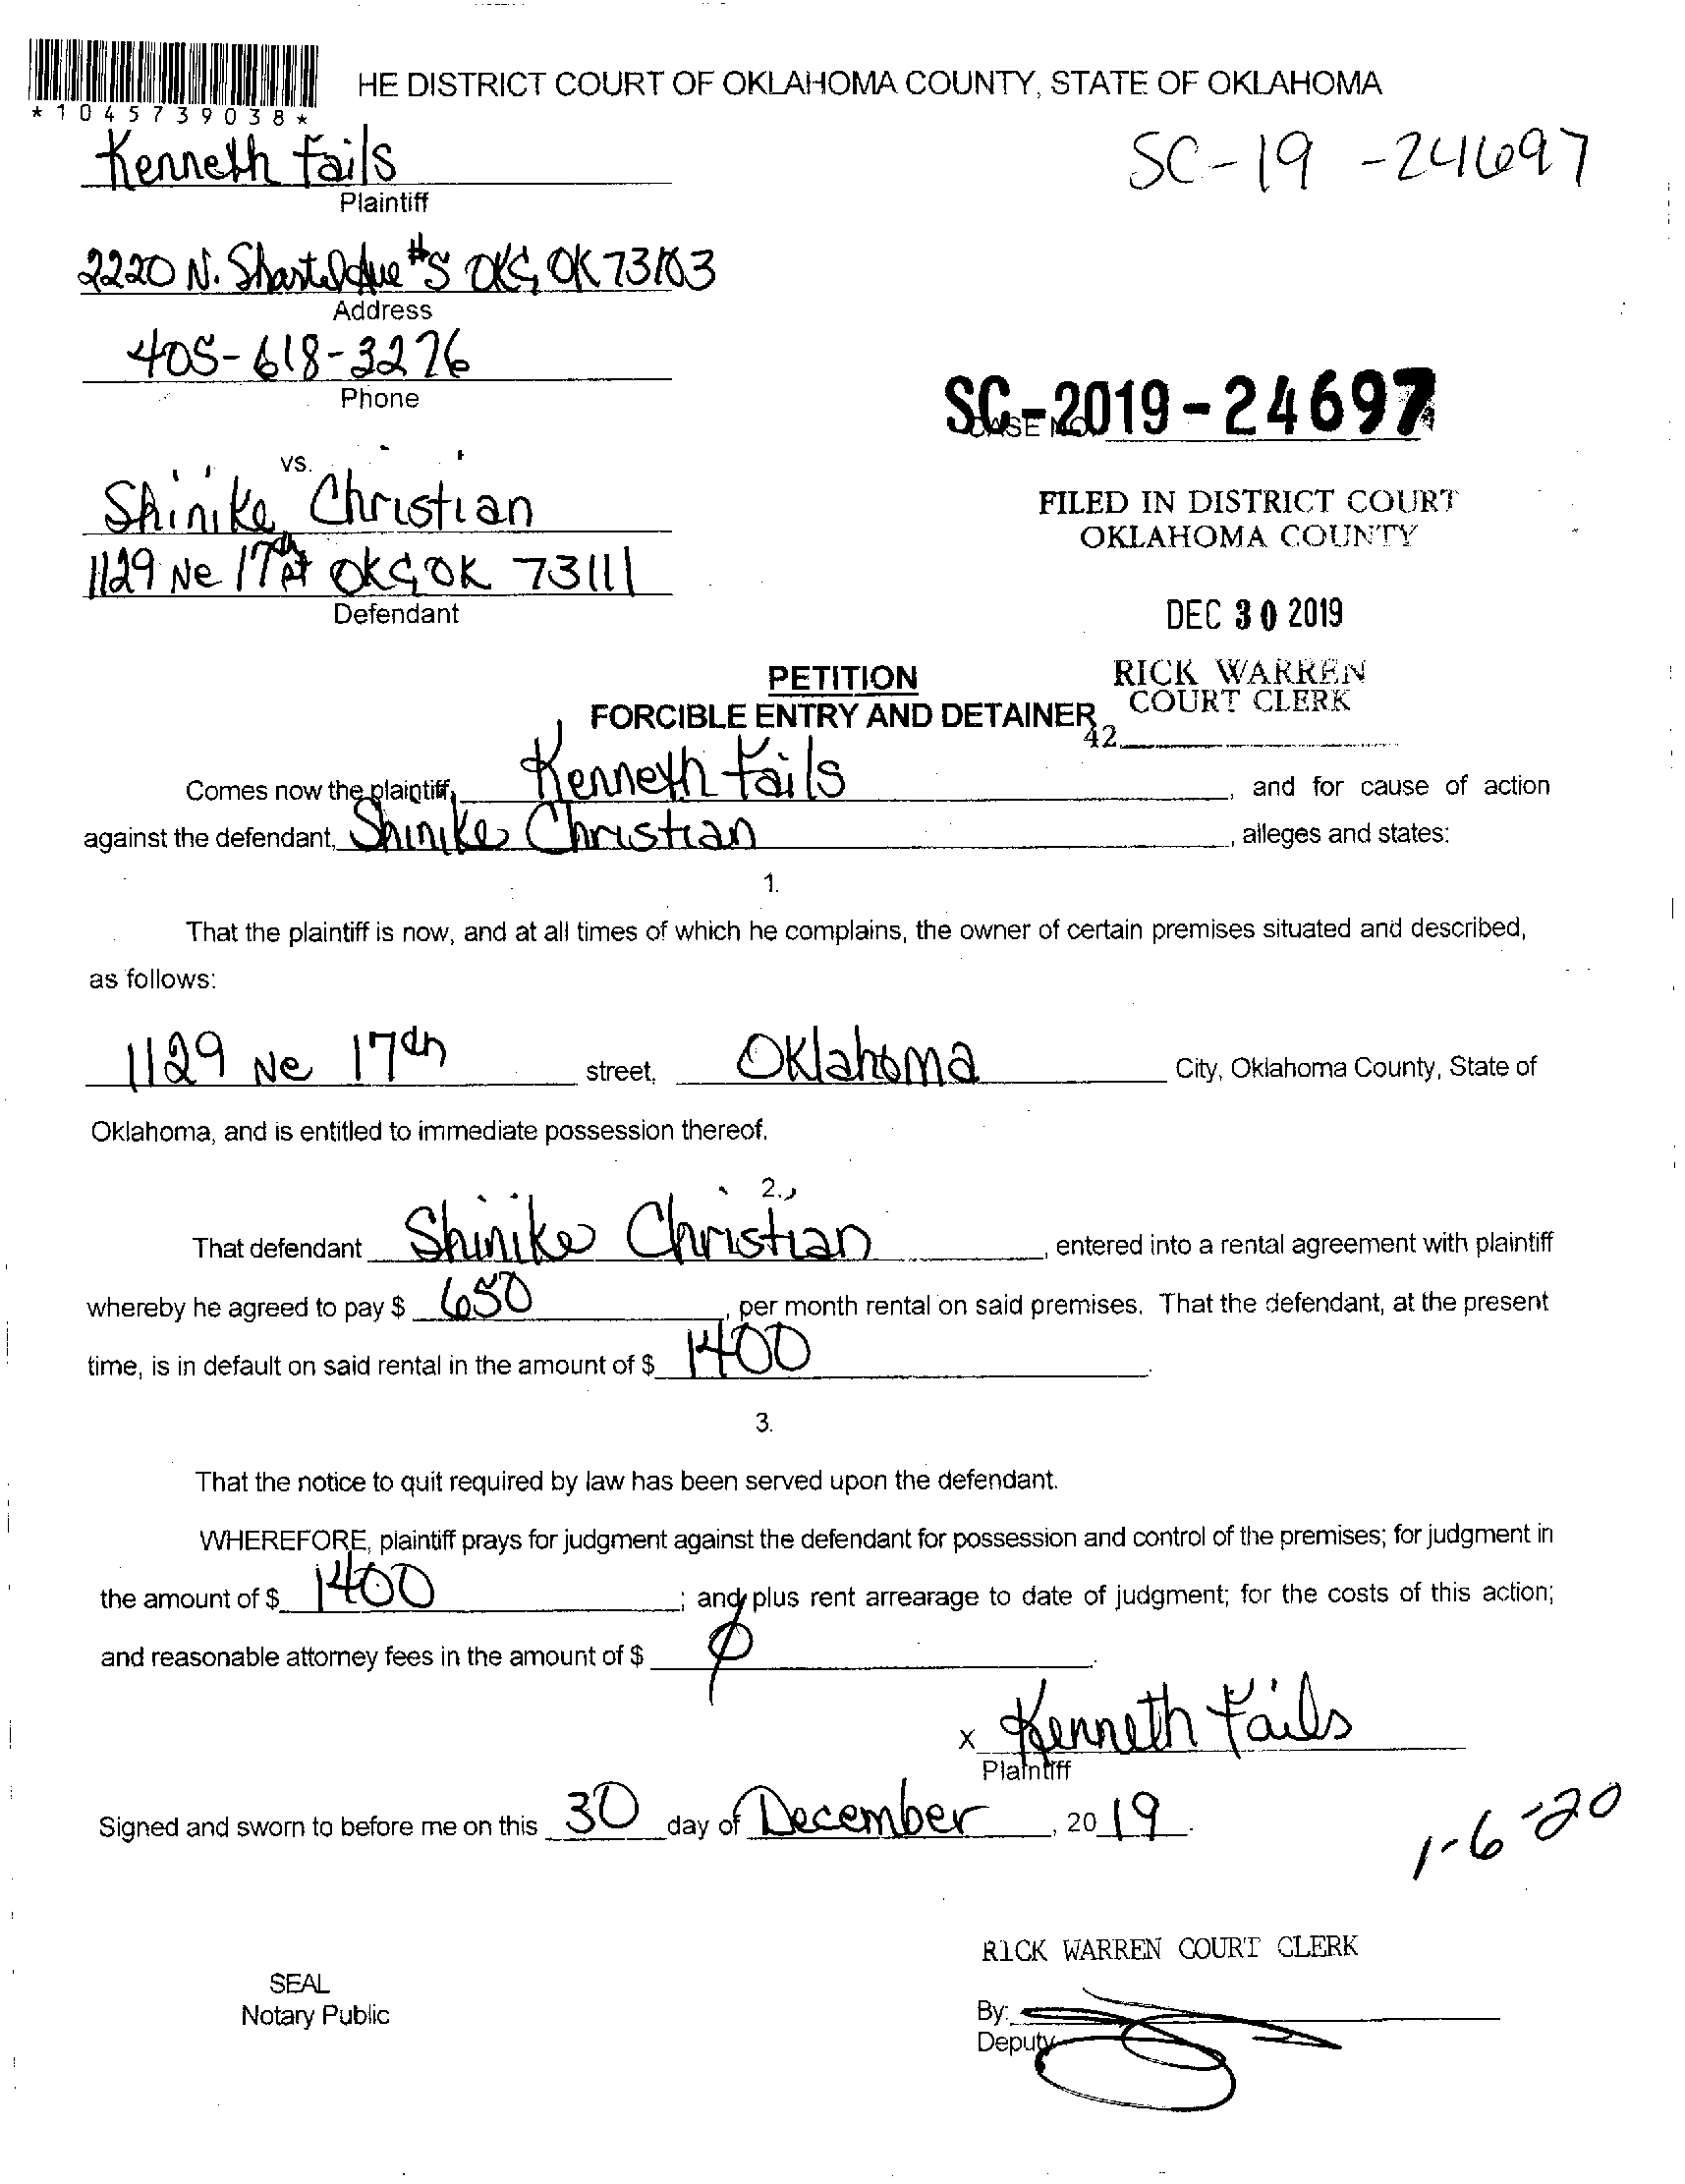 HE DISTRICT COURT OF OKLAHOMA COUNTY, STATE OF OKLAHOMA
*1045739038*
Kenneth Fails
SC-19-24697
Plaintiff
2220 N. Shartel Ave #5 OKC, OK 73103
Address
405-618-3276
Phone
SC-2019-24697
CASE NO.
vs.
Shinike Christian
FILED IN DISTRICT COURT
OKLAHOMA COUNTY
1129 Ne 17th st OKC, OK 73111
Defendant
DEC 30 2019
PETITION
RICK WARREN
COURT CLERK
FORCIBLE ENTRY AND DETAINER
42
Comes now the plaintiff, Kenneth Fails, and for cause of action
against the defendant, Shinike Christian, alleges and states:
1.
That the plaintiff is now, and at all times of which he complains, the owner of certain premises situated and described,
as follows:
1129 Ne 17th street, Oklahoma City, Oklahoma County, State of
Oklahoma, and is entitled to immediate possession thereof.
2.
That defendant Shinike Christian, entered into a rental agreement with plaintiff
whereby he agreed to pay $ 650, per month rental on said premises. That the defendant, at the present
time, is in default on said rental in the amount of $ 1400.
3.
That the notice to quit required by law has been served upon the defendant.
WHEREFORE, plaintiff prays for judgment against the defendant for possession and control of the premises; for judgment in
the amount of $ 1400; and plus rent arrearage to date of judgment; for the costs of this action;
and reasonable attorney fees in the amount of $ Ø.
x Kenneth Fails
Plaintiff
Signed and sworn to before me on this 30 day of December, 2019.
1-6-20
RICK WARREN COURT CLERK
SEAL
Notary Public
By:
Deputy